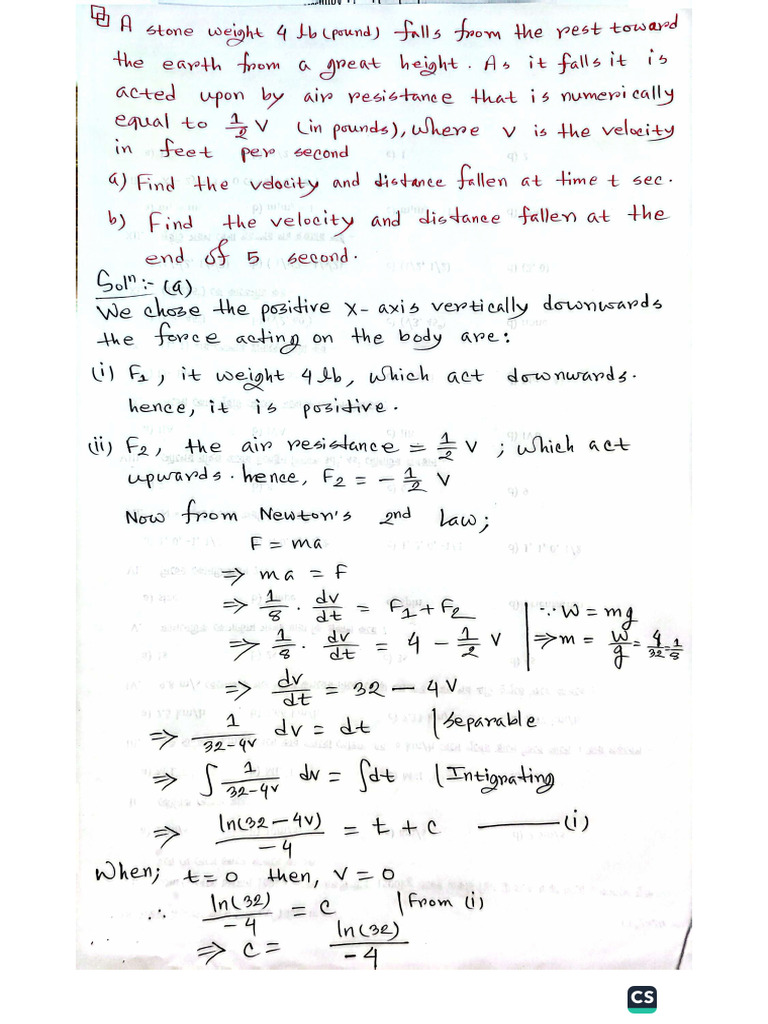 A stone weight 4 lb (pound) falls from the rest toward
the earth from a great height. As it falls it is
acted upon by air resistance that is numerically
equal to 1/2 V (in pounds), where v is the velocity
in feet per second
a) Find the velocity and distance fallen at time t sec.
b) Find the velocity and distance fallen at the
end of 5 second.
Solⁿ:- (a)
We chose the positive X-axis vertically downwards
the force acting on the body are:
(i) F₁, it weight 4 lb, which act downwards.
hence, it is positive.
(ii) F₂, the air resistance = 1/2 V ; which act
upwards. hence, F₂ = - 1/2 V
Now from Newton's 2nd Law;
F = ma
⇒ ma = F
⇒ 1/8 . dv/dt = F₁ + F₂ | ∵ W = mg
⇒ 1/8 . dv/dt = 4 - 1/2 V | ⇒ m = W/g = 4/32 = 1/8
⇒ dv/dt = 32 - 4V
⇒ 1/(32-4V) dv = dt | Separable
⇒ ∫ 1/(32-4V) dv = ∫dt | Intignating
⇒ ln(32-4V)/-4 = t + c ——— (i)
When; t = 0 then, V = 0
∴ ln(32)/-4 = c | From (i)
⇒ c = ln(32)/-4
CS